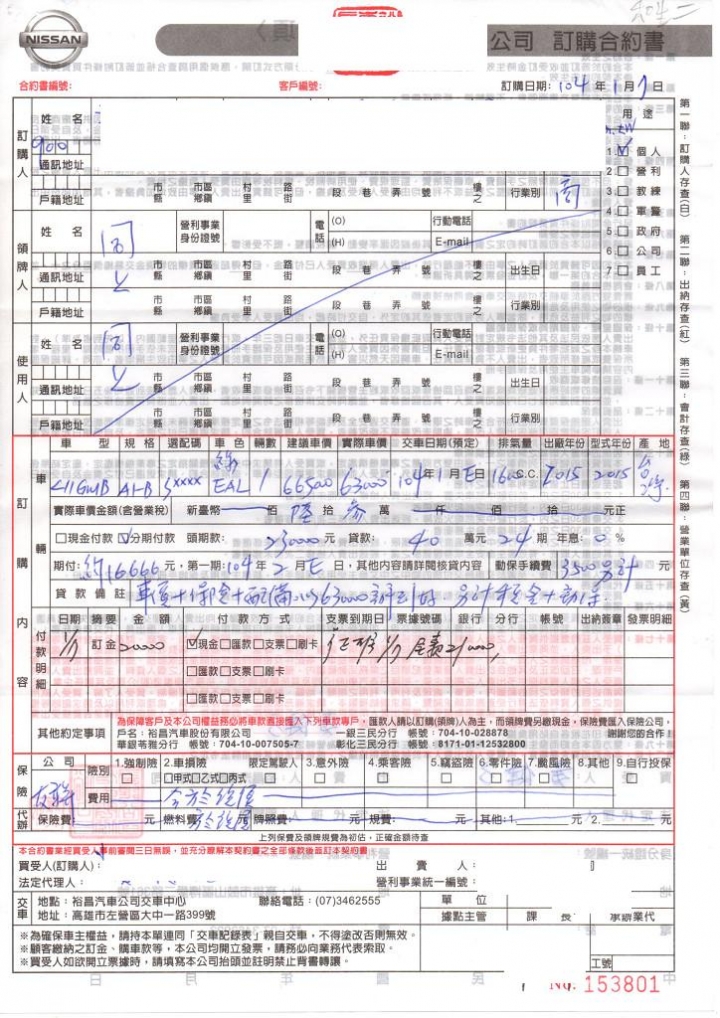 NISSAN
公司 訂購合約書
合約書編號:
客戶編號:
訂購日期: 104 年 1 月 7 日
訂購人
姓名
用途
1. 個人
通訊地址 市縣 市區鄉鎮 村里 路街 段 巷 弄 號 樓之
2. 營利
戶籍地址 市縣 市區鄉鎮 村里 路街 段 巷 弄 號 樓之 行業別 商
3. 教練
4. 軍警
5. 政府
6. 公司
7. 員工
領牌人
姓名 同上 營利事業身份證號 電話 (O) (H) 行動電話 E-mail
通訊地址 市縣 市區鄉鎮 村里 路街 段 巷 弄 號 樓之 出生日
戶籍地址 市縣 市區鄉鎮 村里 路街 段 巷 弄 號 樓之 行業別
使用人
姓名 同上 營利事業身份證號 電話 (O) (H) 行動電話 E-mail
通訊地址 市縣 市區鄉鎮 村里 路街 段 巷 弄 號 樓之 出生日
戶籍地址 市縣 市區鄉鎮 村里 路街 段 巷 弄 號 樓之 行業別
第一聯:訂購人存查(白) 第二聯:出納存查(紅) 第三聯:會計存查(綠) 第四聯:營業單位存查(黃)
訂購內容
車輛
車型 規格 選配碼 車色 輛數 建議車價 實際車價 交車日期(預定) 排氣量 出廠年份 型式年份 產地
EAL 1 665000 630000 104年1月E日 1600 S.C. 2015 2015 台灣
實際車價金額(含營業稅) 新臺幣 佰 陸 拾 參 萬 仟 佰 拾 元正
現金付款 分期付款 頭期款: 230000 元 貸款: 40 萬元 24 期 年息: 0 %
期付: 約16666 元,第一期: 104 年 2 月 E 日,其他內容請詳閱核貸內容 動保手續費 3500另計 元
貸款備註 車價+保險+配備以630000辦到好.另計稅金+動保.
付款明細
日期 摘要 金額 付款方式 支票到期日 票據號碼 銀行 分行 帳號 出納簽章 發票明細
1/7 訂金 20000 現金 匯款 支票 刷卡
匯款 支票 刷卡
匯款 支票 刷卡
其他約定事項
為保障客戶及本公司權益務必將車款直接匯入下列車款專戶,匯款人請以訂購(領牌)人為主,而領牌費另繳現金,保險費匯入保險公司,謝謝您的合作!
戶名:裕昌汽車股份有限公司 一銀三民行分行 帳號:704-10-028878
華銀苓雅分行 帳號:704-10-007505-7 彰化三民分行 帳號:8171-01-12532800
保險
公司 險別 1.強制險 2.車損險 甲式 乙式 丙式 限定駕駛人 3.意外險 4.乘客險 5.竊盜險 6.零件險 7.颱風險 8.其他 9.自行投保
費用
代辦 保險費: 元 燃料費: 元 牌照費: 元 規費: 元 其他:1. 元/2. 元
上列保費及領牌規費為初估,正確金額待查
本合約書業經買受人事前審閱三日無誤,並充分瞭解本契約書之全部條款後簽訂本契約書
買受人(訂購人): 出賣人:
法定代理人: 營利事業統一編號:
交車 地點:裕昌汽車公司交車中心 聯絡電話:(07)3462555 單位
地址:高雄市左營區大中一路399號 據點主管 課長 承辦業代
※為確保車主權益,請持本單連同「交車記錄表」親自交車,不得塗改否則無效。
※顧客繳納之訂金、購車款等,本公司均開立發票,請務必向業務代表索取。
※買受人如欲開立票據時,請填寫本公司抬頭並註明禁止背書轉讓。
工號
No. 153801